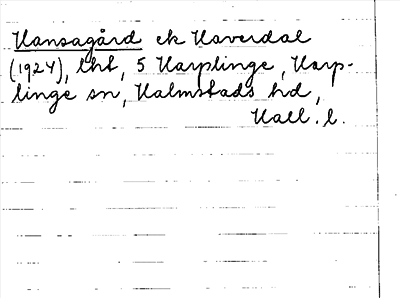 Hansagård ek Haverdal
(1924), lht, S Harplinge, Harp-
linge sn, Halmstads hd,
Hall. l.